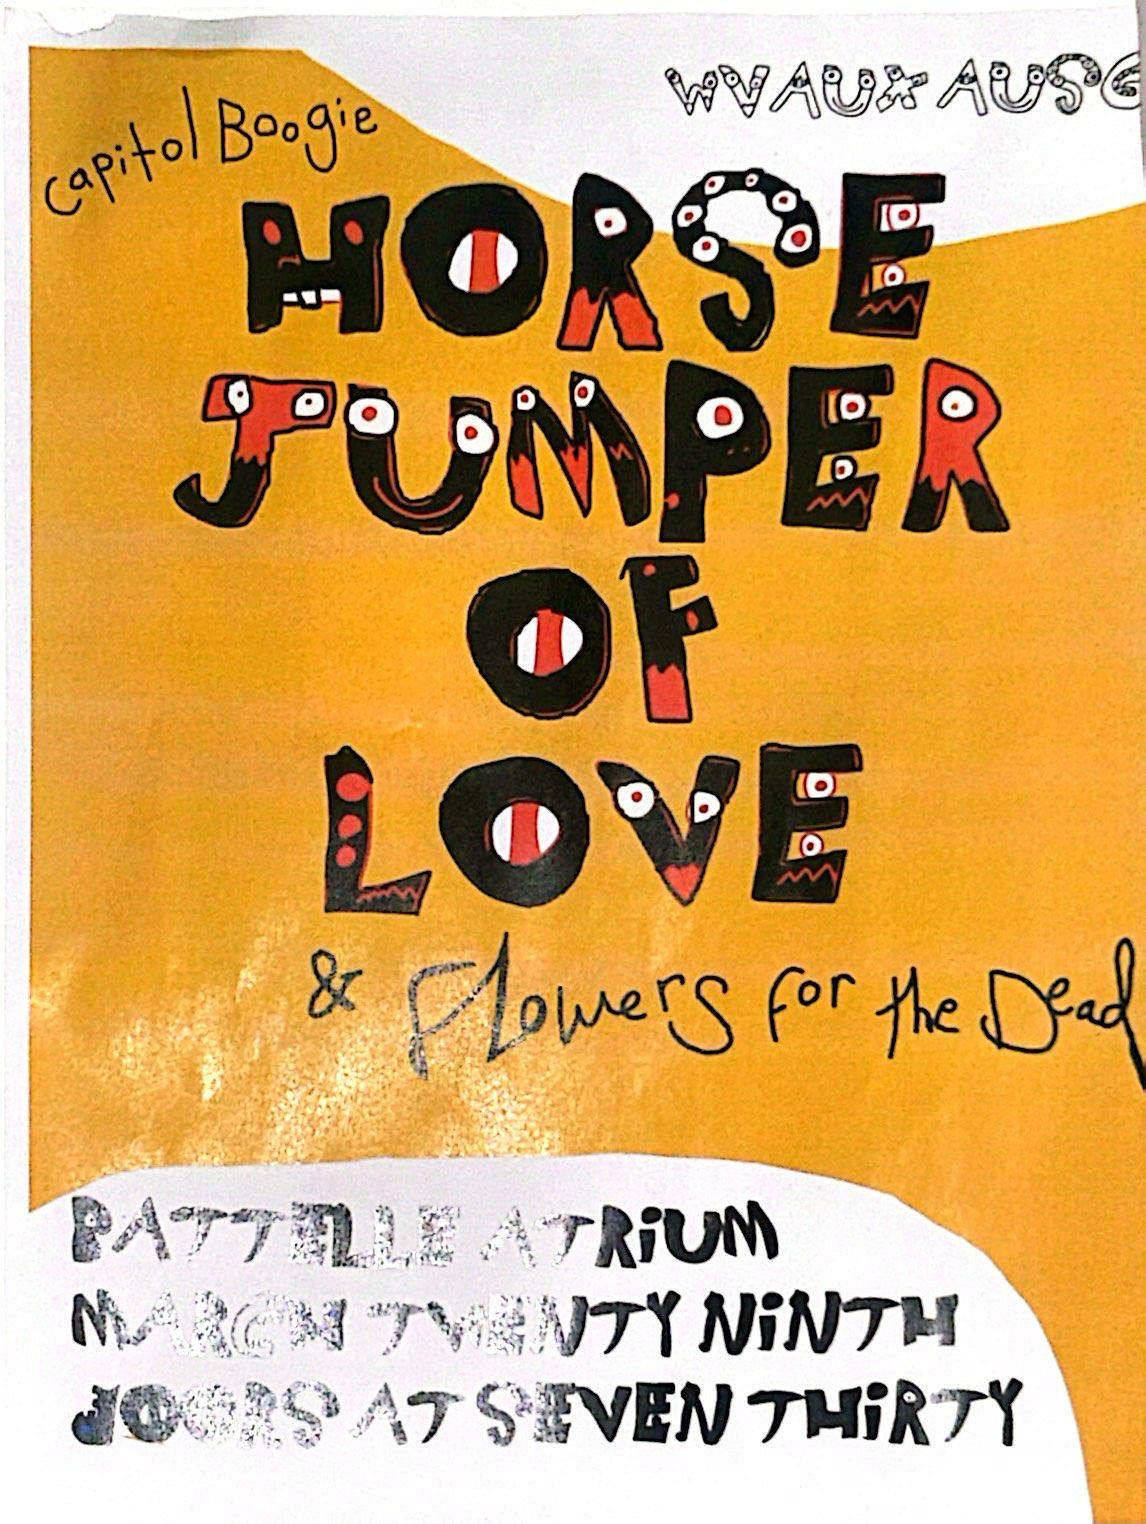 WVAUX AUSG
Capitol Boogie
HORSE
JUMPER
OF
LOVE
& Flowers for the Dead
BATTELLE ATRIUM
MARCH TWENTY NINTH
DOORS AT SEVEN THIRTY